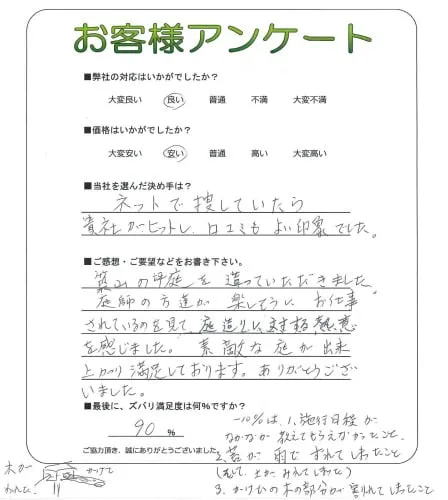 お客様アンケート
■弊社の対応はいかがでしたか?
大変良い 良い 普通 不満 大変不満
■価格はいかがでしたか?
大変安い 安い 普通 高い 大変高い
■当社を選んだ決め手は?
ネットで捜していたら
貴社がヒットし、口コミもよい印象でした。
■ご感想・ご要望などをお書き下さい。
築山の坪庭を造っていただきました
庭師の方達が楽しそうに お仕事
されているのを見て、庭造りに対する熱意
を感じました。素敵な庭が出来
上がり満足しております。ありがとうござ
いました。
■最後に、ズバリ満足度は何%ですか?
90 %
ご協力頂き、誠にありがとうございました
-10%は、1、施行日程が
なかなか教えてもらえなかったこと、
2、苔が雨でずれてしまったこと
(そして土がみえてしまった)
3、かけひの木の部分が割れてしまったこと
木が
われた
かけて